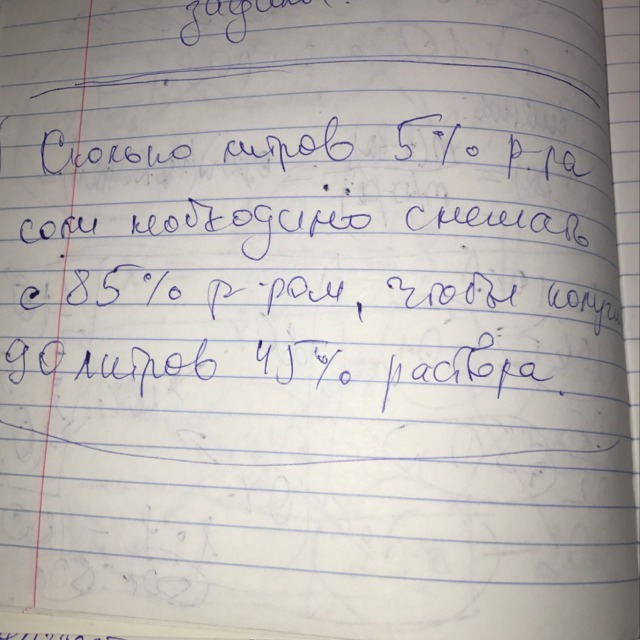 Сколько литров 5% р-ра
соли необходимо смешать
с 85% р-ром, чтобы
90 литров 45% раствора.